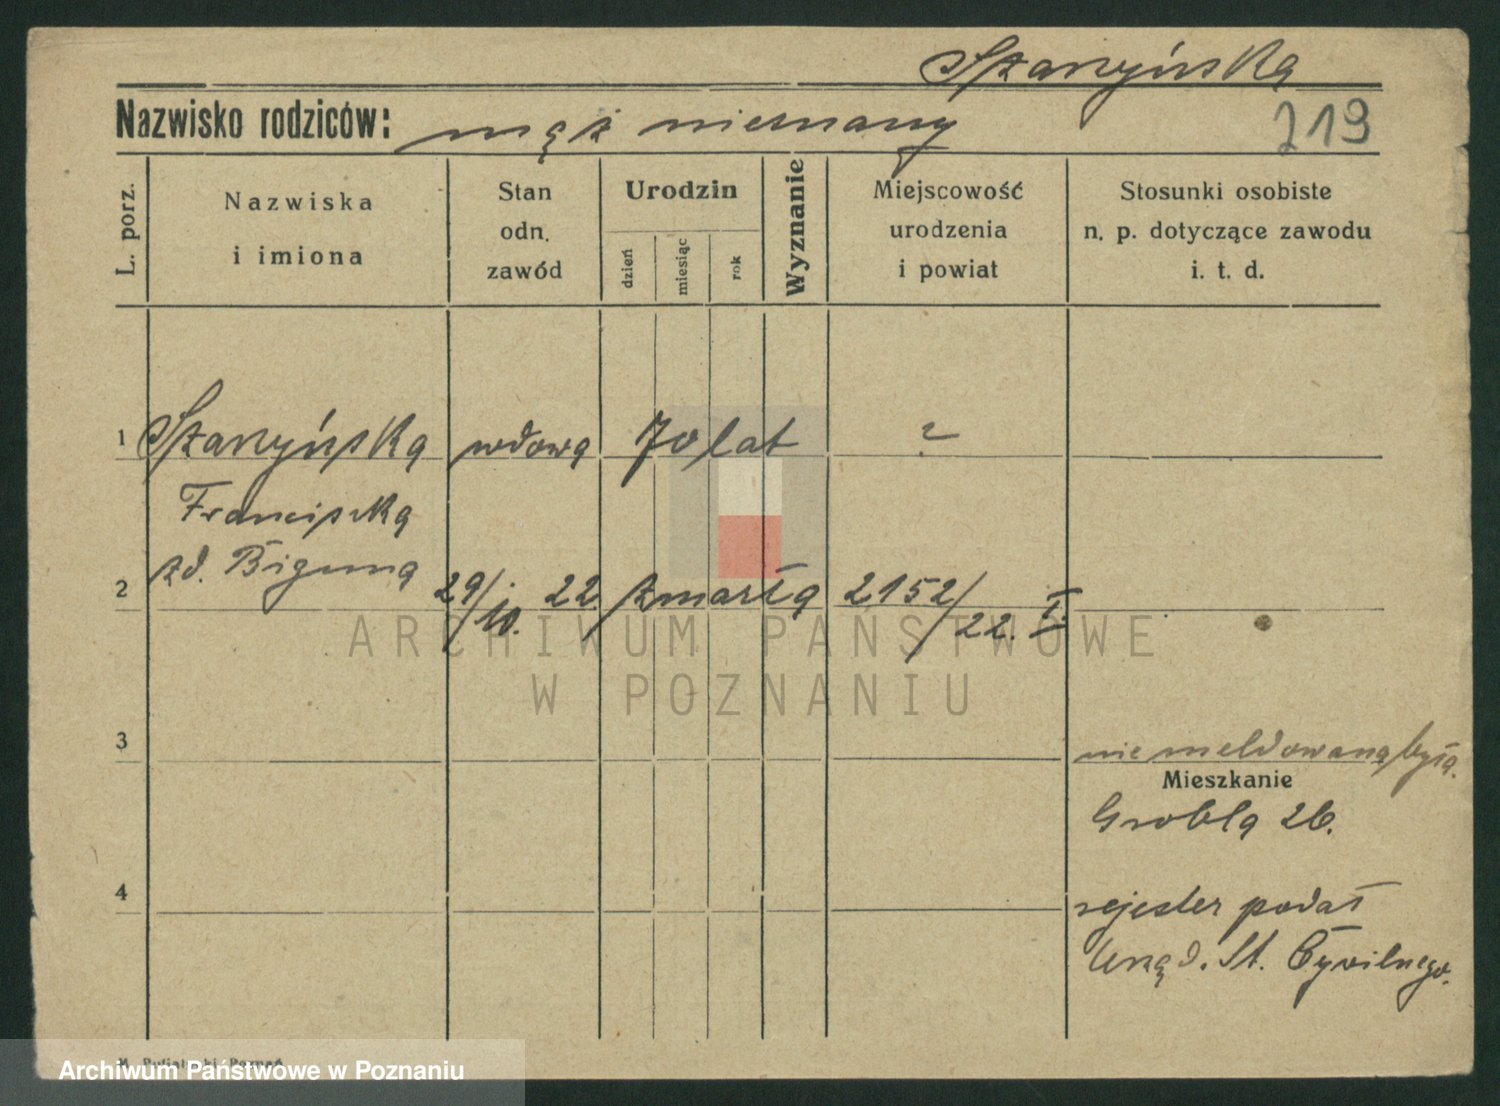 Szaryńska
Nazwisko rodziców: mąż nieznany
219
L. porz.
Nazwiska
i imiona
Stan
odn.
zawód
Urodzin
dzień
miesiąc
rok
Wyznanie
Miejscowość
urodzenia
i powiat
Stosunki osobiste
n. p. dotyczące zawodu
i. t. d.
1 Szaryńska wdowa 70 lat ?
Franciszka
zd. Biguma
2 29/10. 22 zmarła 2152/22. I
ARCHIWUM PAŃSTWOWE
W POZNANIU
3 nie meldowana była.
Mieszkanie
Grobla 26.
4 rejester podał
Urząd. St. Cywilnego.
Archiwum Państwowe w Poznaniu